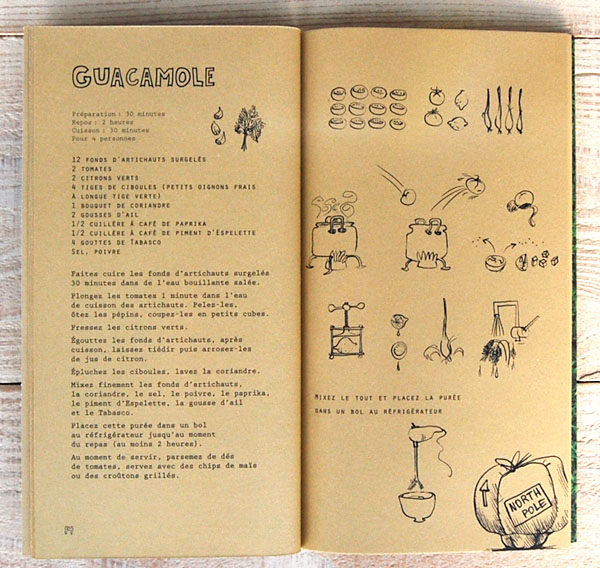 GUACAMOLE
Préparation : 30 minutes
Repos : 2 heures
Cuisson : 30 minutes
Pour 4 personnes
12 FONDS D'ARTICHAUTS SURGELÉS
2 TOMATES
2 CITRONS VERTS
4 TIGES DE CIBOULES (PETITS OIGNONS FRAIS
À LONGUE TIGE VERTE)
1 BOUQUET DE CORIANDRE
2 GOUSSES D'AIL
1/2 CUILLÈRE À CAFÉ DE PAPRIKA
1/2 CUILLÈRE À CAFÉ DE PIMENT D'ESPELETTE
4 GOUTTES DE TABASCO
SEL, POIVRE
Faites cuire les fonds d'artichauts surgelés
30 minutes dans de l'eau bouillante salée.
Plongez les tomates 1 minute dans l'eau
de cuisson des artichauts. Pelez-les,
ôtez les pépins, coupez-les en petits cubes.
Pressez les citrons verts.
Égouttez les fonds d'artichauts, après
cuisson, laissez tiédir puis arrosez-les
de jus de citron.
Épluchez les ciboules, lavez la coriandre.
Mixez finement les fonds d'artichauts,
la coriandre, le sel, le poivre, le paprika,
le piment d'Espelette, la gousse d'ail
et le Tabasco.
Placez cette purée dans un bol
au réfrigérateur jusqu'au moment
du repas (au moins 2 heures).
Au moment de servir, parsemez de dés
de tomates, servez avec des chips de maïs
ou des croûtons grillés.
MIXEZ LE TOUT ET PLACEZ LA PURÉE
DANS UN BOL AU RÉFRIGÉRATEUR
NORTH
POLE